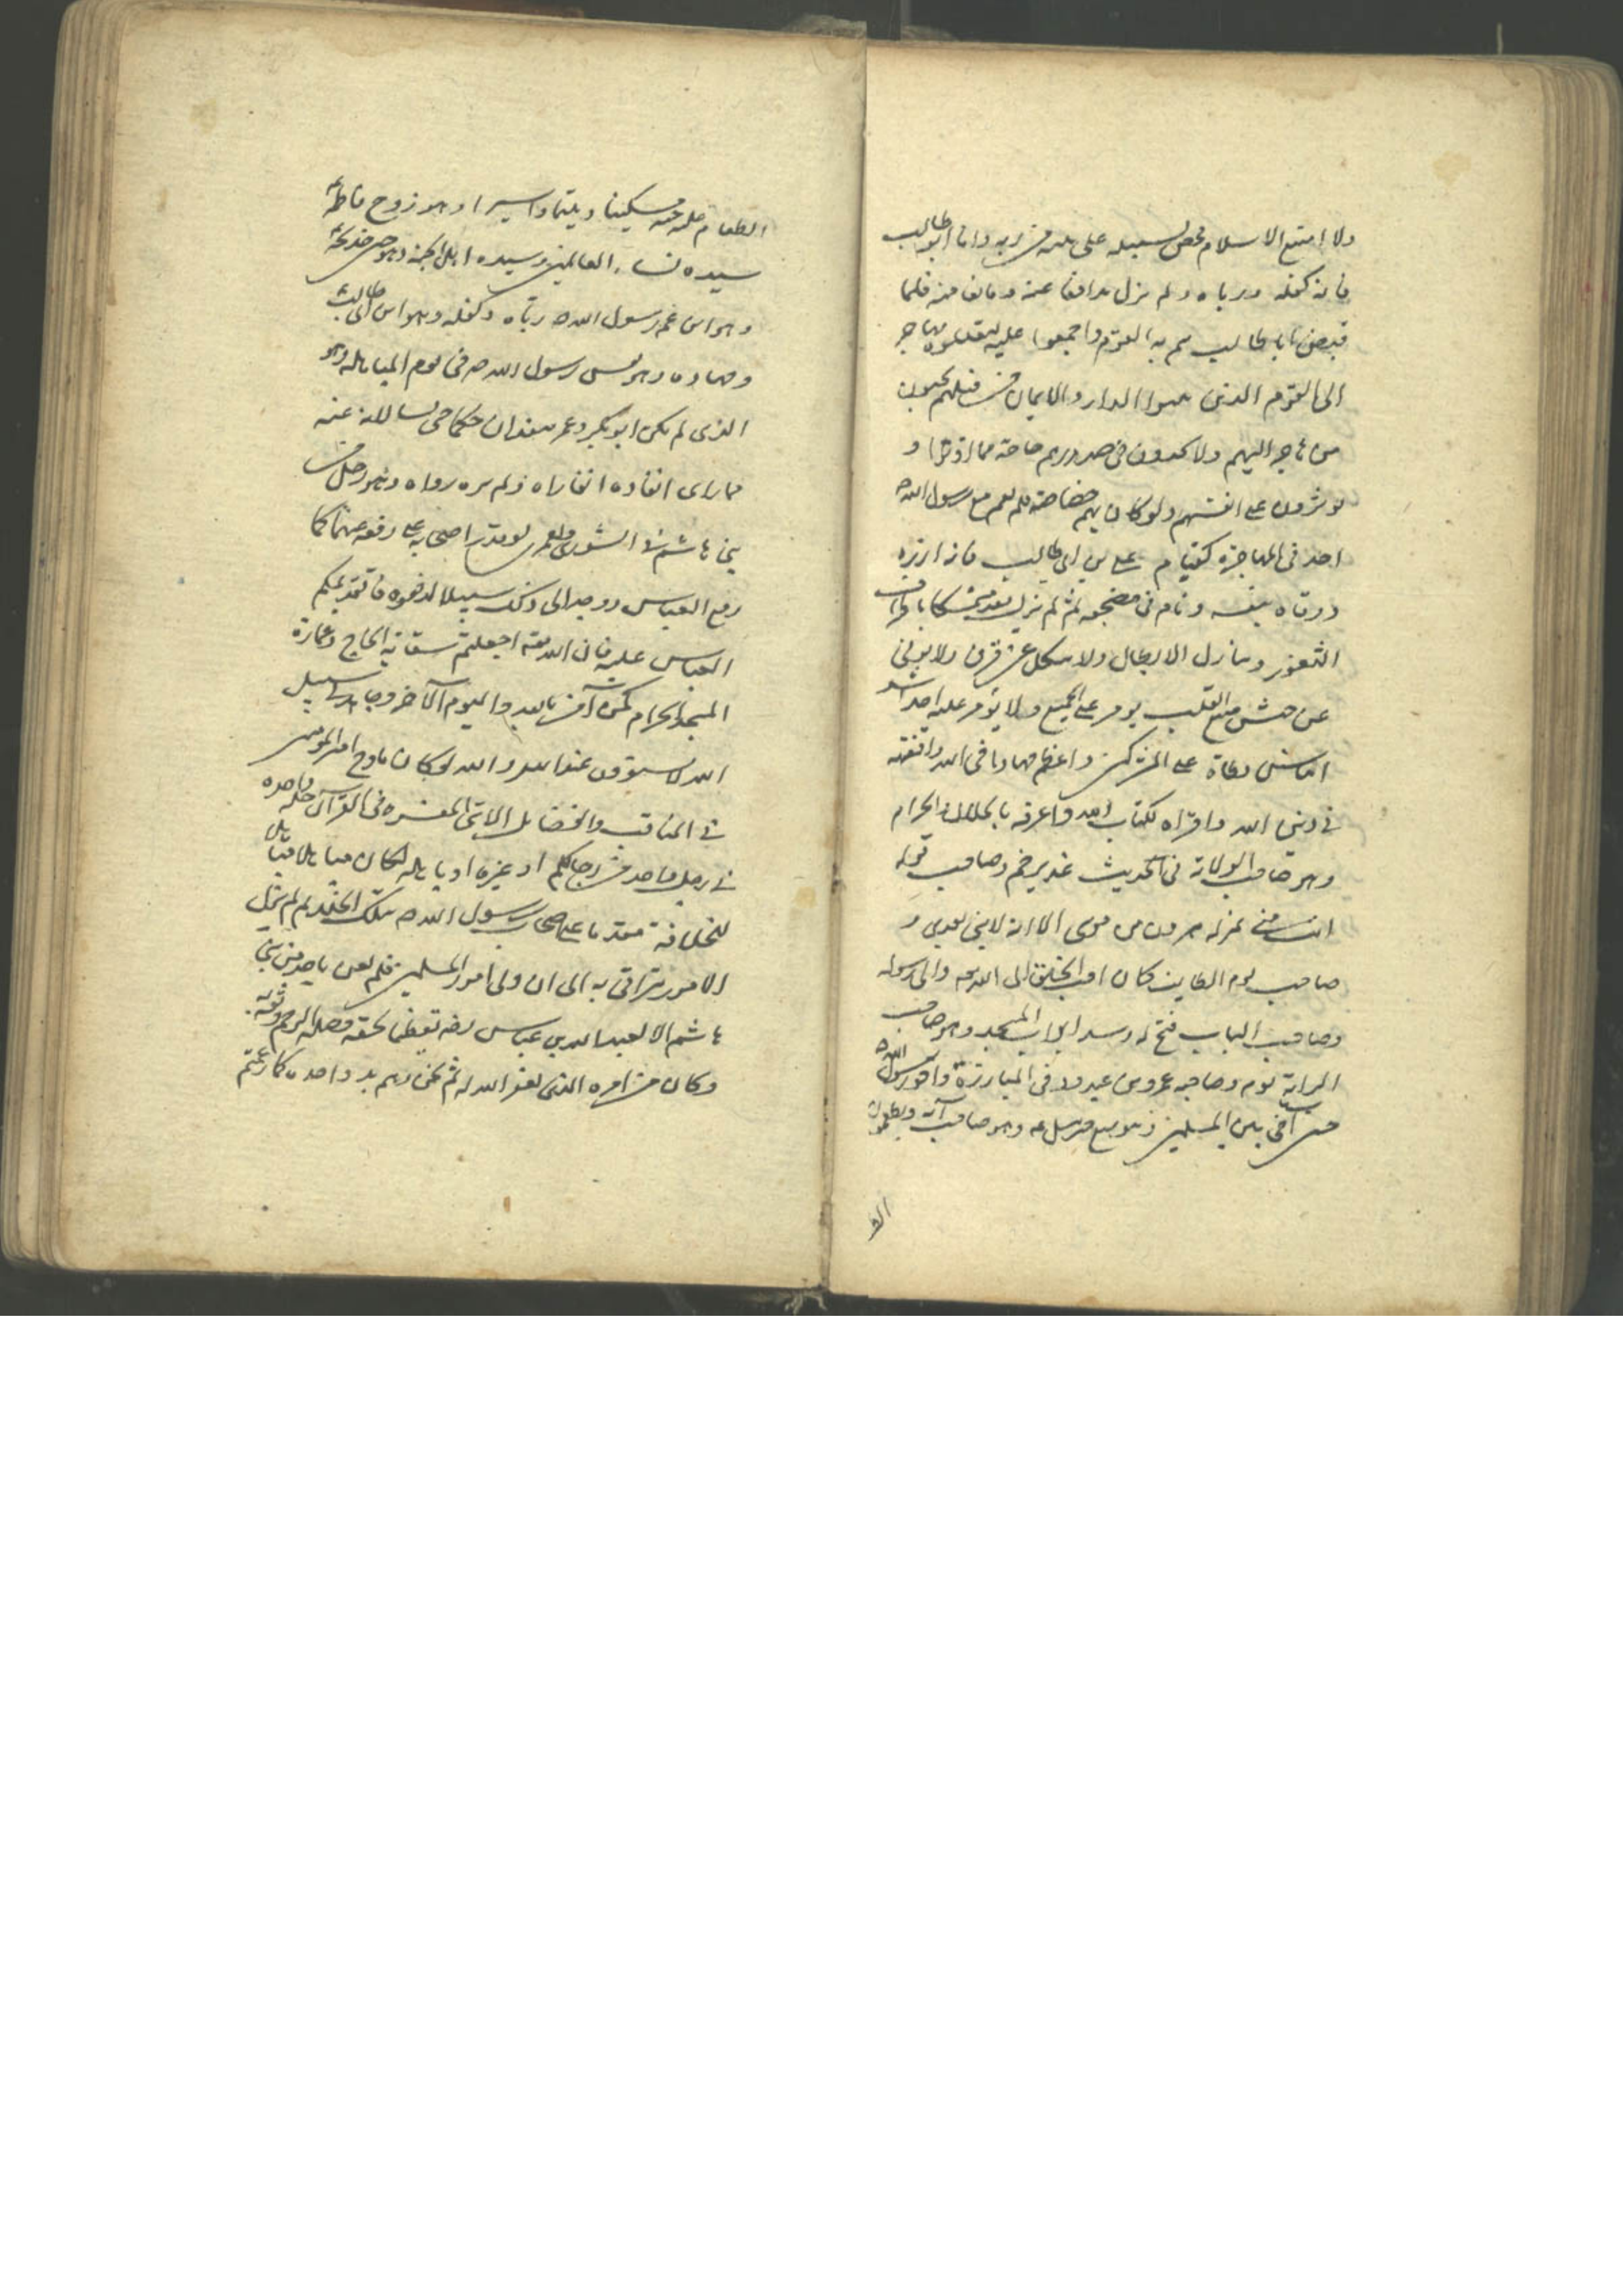 ولا امتنع الاسلام فمضى لسبيله على بينة من ربه واما ابو طالب
فانه كفله ورباه ولم يزل مدافعا عنه ومانعا منه فلما
قبض ابا طالب هم به القوم واجمعوا عليه ليقتلوه فهاجر
الى القوم الذين تبوؤا الدار والايمان من قبلهم يحبون
من هاجر اليهم ولا يجدون في صدورهم حاجة مما اوتوا و
يوثرون على انفسهم ولو كان بهم خصاصة فلم يقم مع رسول الله ص
احد في المهاجرة كقيام علي بن ابي طالب فانه ازره
ووقاه بنفسه ونام في مضجعه ثم لم يزل بعد متمسكا باطراف
الثغور وينازل الابطال ولا ينكل عن قرن ولا يولي
عن جيش منيع القلب يومر على الجميع ولا يؤمر عليه احد اشد
الناس وطاة على المشركين واعظم جهادا في الله وافقهه
في دين الله واقراه لكتاب الله واعرفه بالحلال والحرام
وهو صاحب الولاية في الحديث غدير خم وصاحب قوله
انت مني بمنزلة هرون من موسى الا انه لا نبي بعدي و
صاحب يوم الطايف كان احب الخلق الى الله تعه والى رسوله
وصاحب الباب فتح له وسد ابواب المسجد وهو صاحب
الراية يوم وصاحبه عمرو بن عبدود في المبارزة واخو رسول الله ص
حين آخى بين المسلمين وهو منيع جزيل عه وهو صاحب آية ويطعمون
الط
الطعام على حبه مسكينا ويتيما واسيرا وهو زوج فاطمة
سيدة نساء العالمين وسيدة اهل الجنة وهو ختن خديجة
وهو ابن عم رسول الله ص رباه وكفله وهو ابن ابي طالب
وجهاده وهو نفس رسول الله ص في يوم المباهلة وهو
الذي لم يكن ابو بكر وعمر ينفذان حكما حتى يسالانه عنه
فما راى انفاذه انفذاه وما لم يره رداه وهو دخل من
بني هاشم في الشورى ولعمري لو قدر اصحابه على دفعه عنها كما
دفع العباس ووجد الى ذلك سبيلا لدفعوه فاما تقديمكم
العباس عليه فان الله تعه اجعلتم سقاية الحاج وعمارة
المسجد الحرام كمن آمن بالله واليوم الآخر وجاهد في سبيل
الله لا يستوون عند الله والله لو كان ما في امير المومنين
في المناقب والفضايل والاي المفسره في القرآن خلة واحدة
في رجل واحد من رجالكم او غيره او باهله لكان مستاهلا متاهلا
للخلافة مقدما على اصحاب رسول الله ص بتلك الخلة ثم لم تزل
الامور تتراقى به الى ان ولى امور المسلمين فلم يعن باحد من بني
هاشم الا لعبد الله بن عباس رضه تعظيما لحقه وصلة لرحمه وثقة به
وكان من امره الذي يغفر الله له ثم نحن وهم يد واحدة كما زعمتم